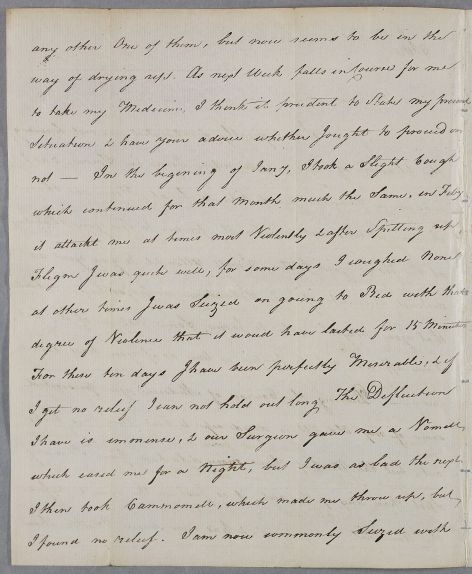 any other One of them, but now seems to be in the
way of drying up. As next Week falls in Course for me
to take my Medicine, I think it prudent to State my present
Situation & have your advice whether I ought to proceed or
not — In the begining of Jany, I took a Slight Cough
which continued for that Month much the Same, in Feby
it attackt me at times most Violently & after Spitting up
Flegm I was quite well, for some days I coughed None
at other times I was Seized on going to Bed with that
degree of Violence that it woud have lasted for 15 Minutes
For these ten days I have been perfectly Miserable, & if
I get no relief I can not hold out long. The Defluction
I have is immense, & our Surgeon gave me a Vomet,
which eased me for a Night, but I was as bad the next,
I then took Cammomele, which made me throw up, but
I found no relief. I am now commonly Seized with